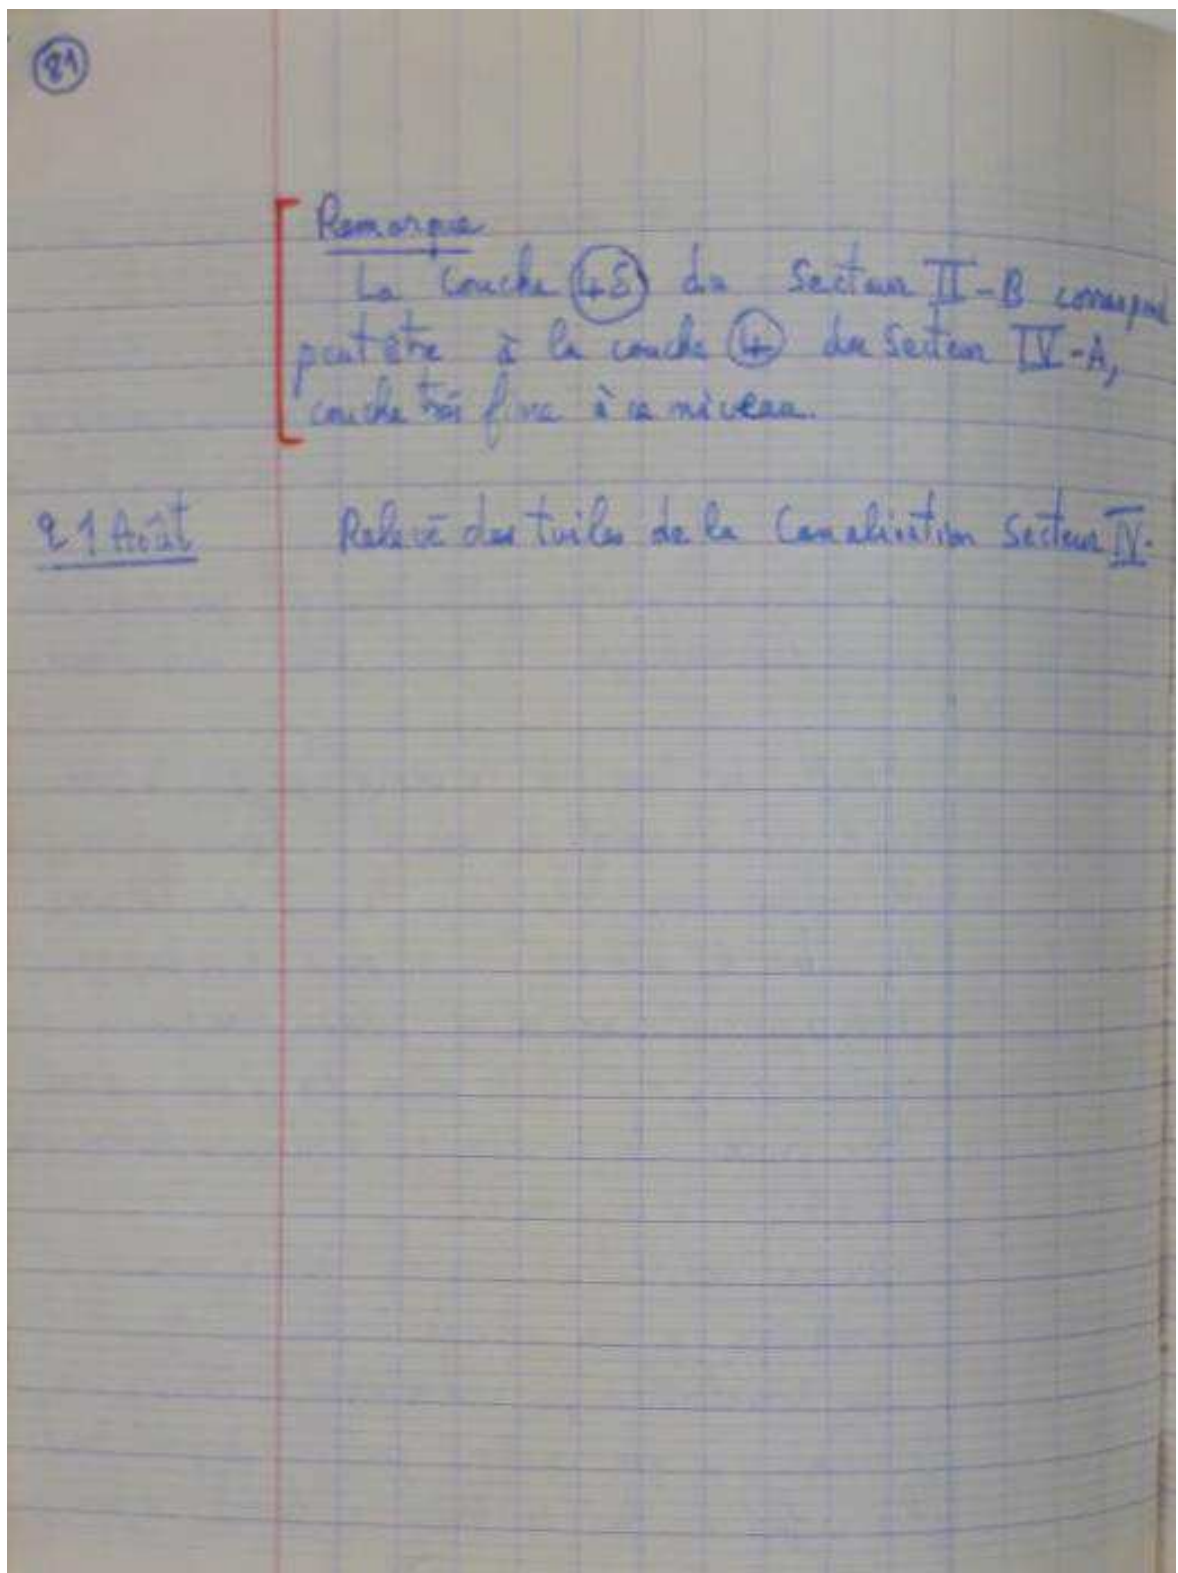 81
Remarque
La couche 45 du Secteur II-B correspond
peut être à la couche 4 du Secteur IV-A,
couche très fine à ce niveau.
21 Août Relevé des tuiles de la Canalisation Secteur IV.